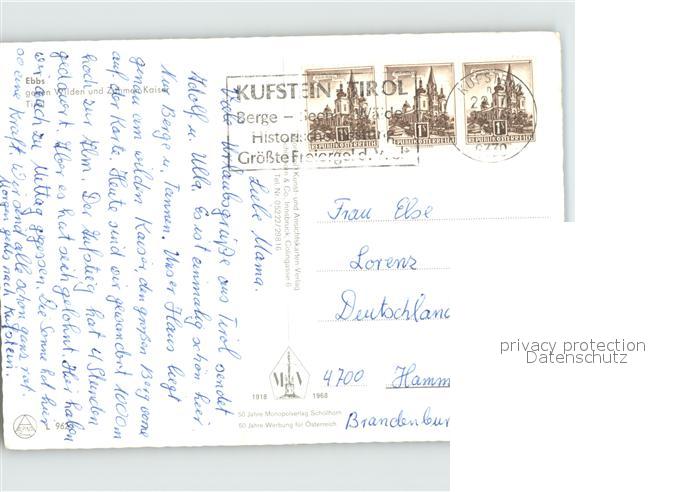 Liebe Mama.
Viele Urlaubsgrüße aus Tirol sendet
Adolf u. Ulla. Es ist einmalig schön hier.
Nur Berge u. Tannen. Unser Haus liegt
genau am wilden Kaiser, den großen Berg vorne
auf der Karte. Heute sind wir gewandert 1000 m
hoch zur Alm. Der Aufstieg hat 4 Stunden
gedauert. Aber es hat sich gelohnt. Hier haben
wir auch zu Mittag gegessen. Die Sonne hat hier
so eine Kraft. Wir sind alle schon ganz rot.
Morgen gehts nach Kufstein.
Ebbs
gegen Wilden und Zahmen Kaiser
L 962
KUFSTEIN TIROL
Berge – Seen – Wälder
Historische
Größte Freiorgel d. Welt
KUFSTEIN
REPUBLIK ÖSTERREICH
REPUBLIK ÖSTERREICH
REPUBLIK ÖSTERREICH
Kunst- und Ansichtskarten Verlag
& Co, Innsbruck,
Tel. Nr. 05222/28816
1918 1968
50 Jahre Monopolverlag Schöllhorn
50 Jahre Werbung für Österreich
Frau Else
Lorenz
Deutschland
4700 Hamm
Brandenbur
privacy protection
Datenschutz